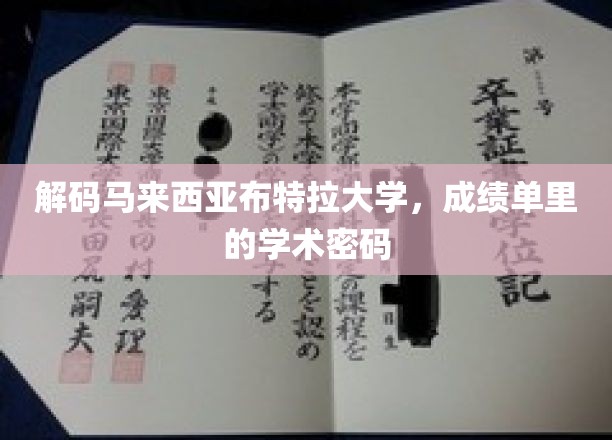 解码马来西亚布特拉大学，成绩单里
的学术密码
第 号
卒業証 学位記
日生
本学商学部 定の課程を
修めて本学 ことを認め
学士(商学)の学 する
平成
東京国際大学 田村愛理
東京国際大学長田尻嗣夫